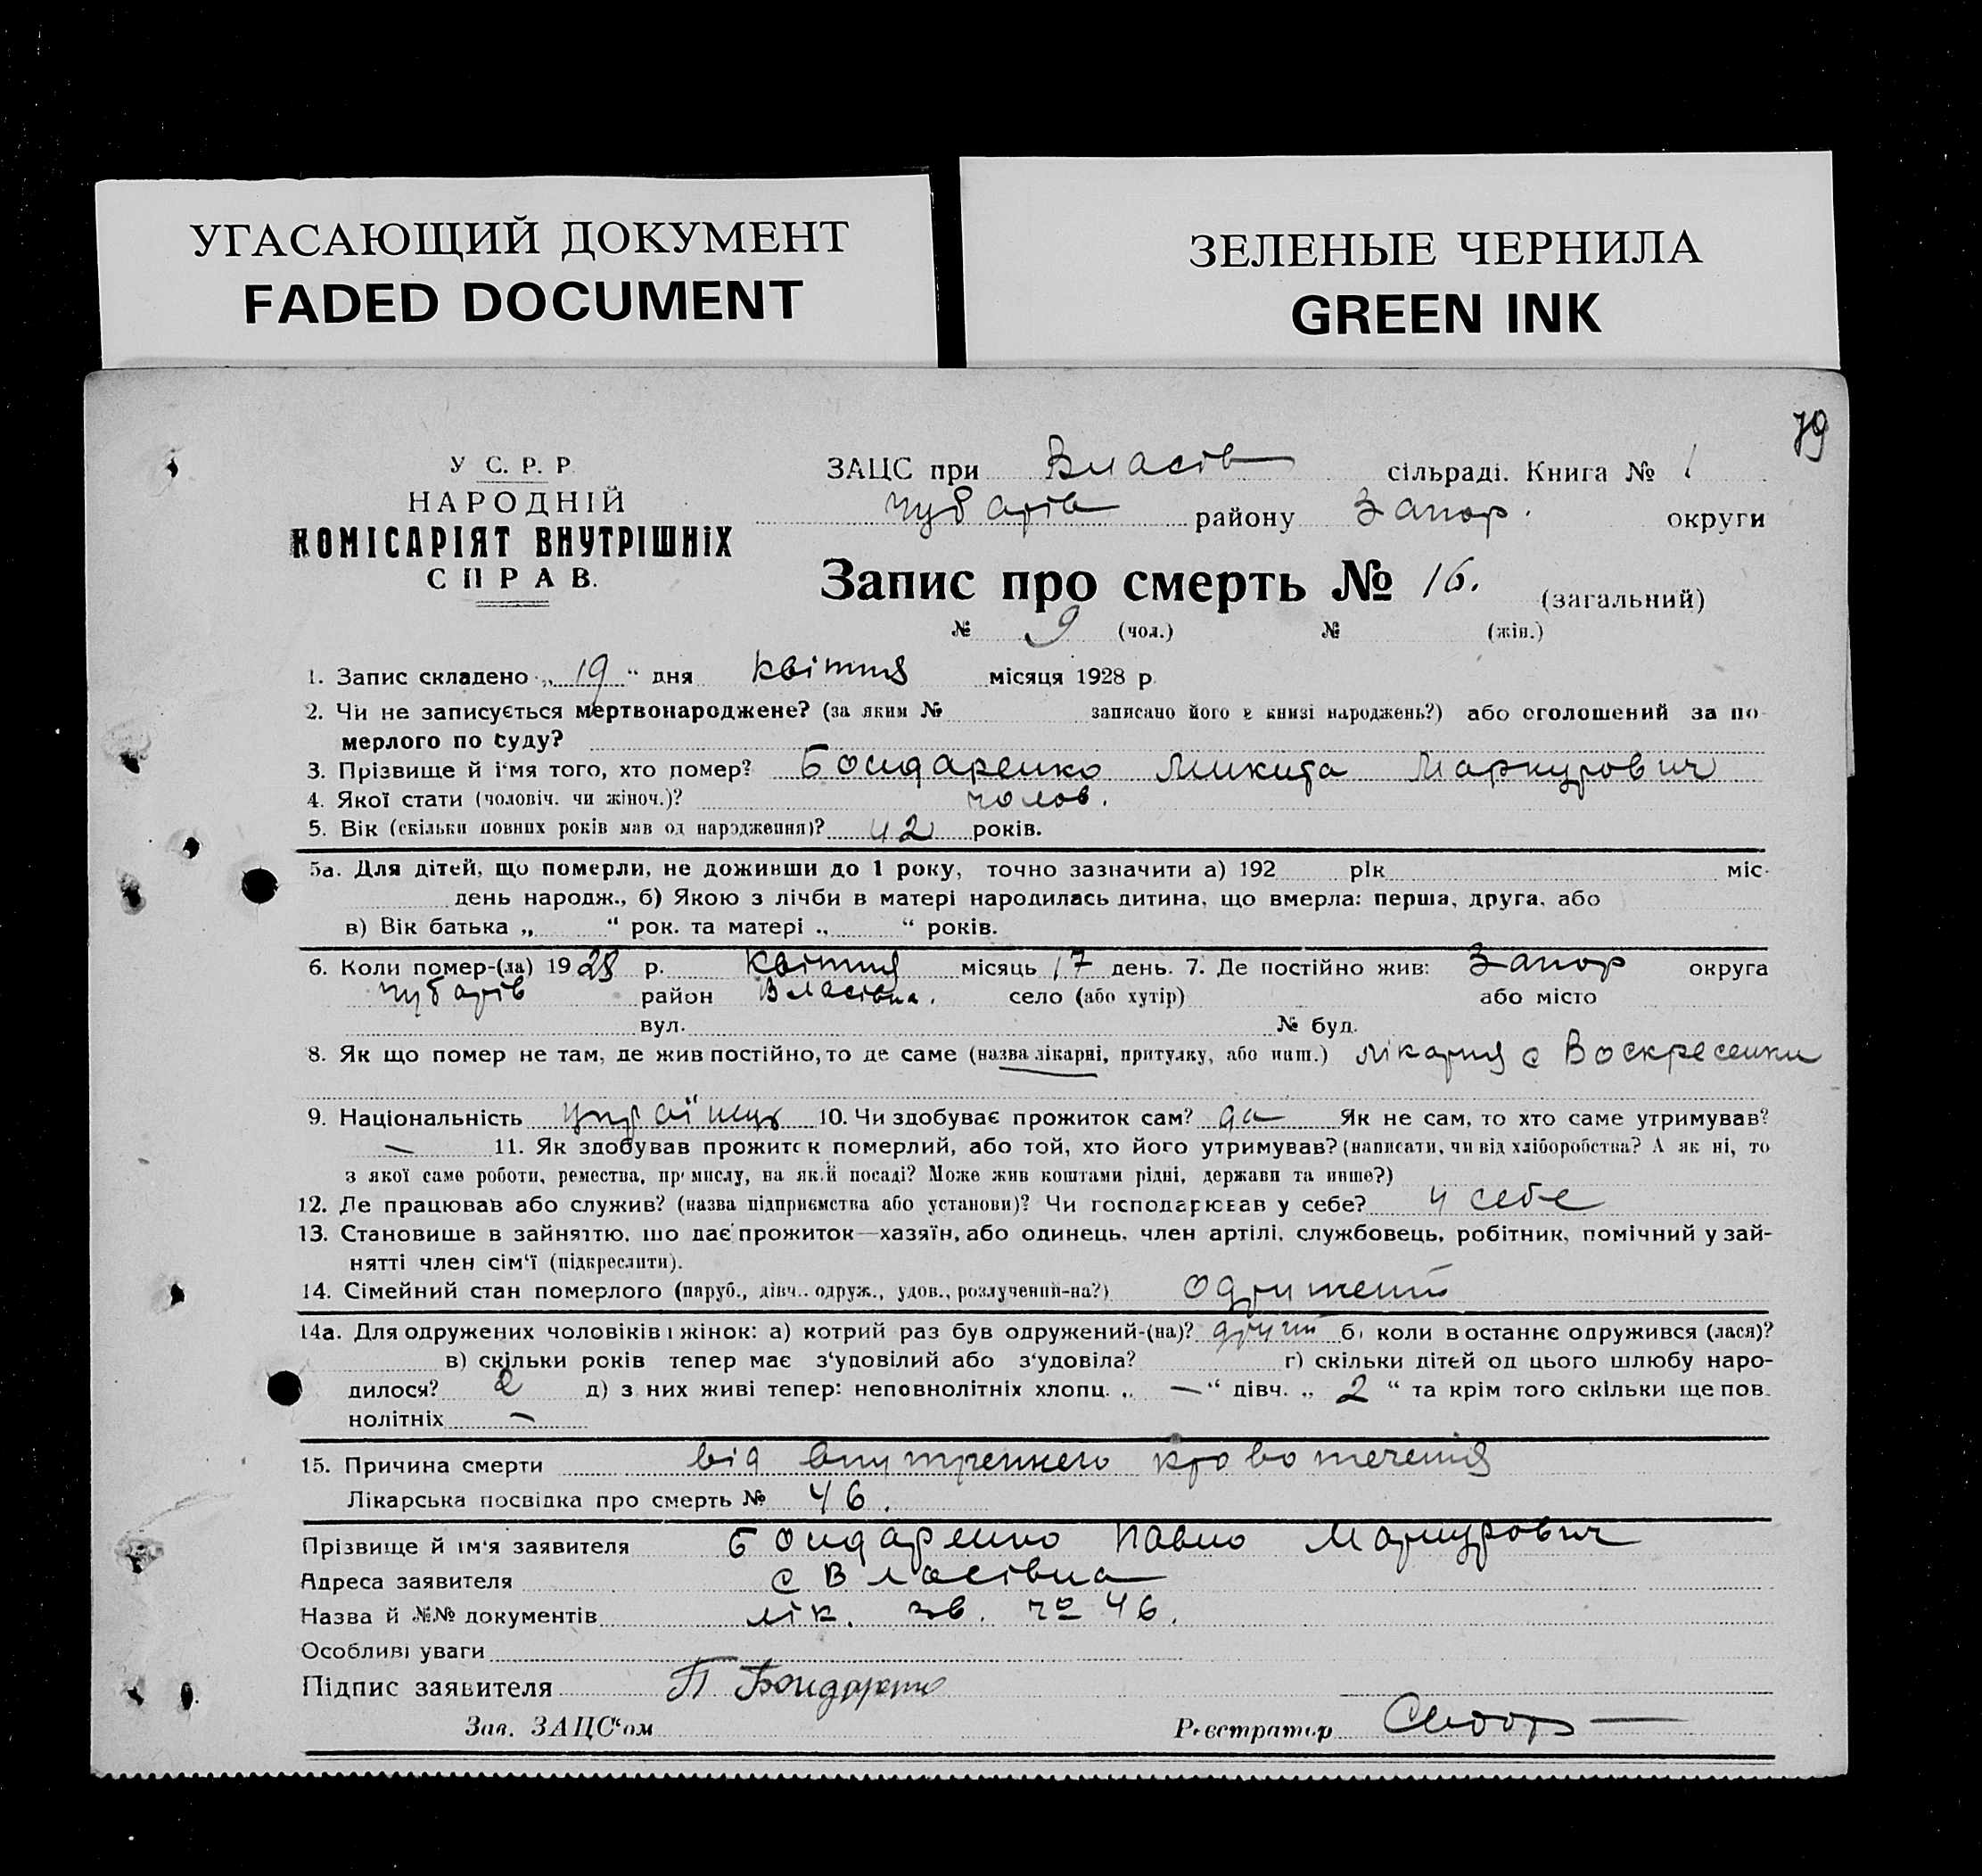 УГАСАЮЩИЙ ДОКУМЕНТ
FADED DOCUMENT
ЗЕЛЕНЫЕ ЧЕРНИЛА
GREEN INK
79
У С. Р. Р
НАРОДНІЙ
КОМІСАРІЯТ ВНУТРІШНІХ
СПРАВ.
ЗАЦС при Власів сільраді. Книга № 1
Чубарів району Запор. округи
Запис про смерть № 16. (загальний)
№ 9 (чол.) № (жін.)
1. Запис складено „ 19 “ дня Квітня місяця 1928 р
2. Чи не записується мертвонароджене? (за яким № записано його в книзі народжень?) або оголошений за по-
мерлого по суду?
3. Прізвище й і'мя того, хто помер? Бондаренко Микита Маркурович
4. Якої стати (чоловіч. чи жіноч.)? чолов.
5. Вік (скільки повних років мав од народження)? 42 років.
5а. Для дітей, що померли, не доживши до 1 року, точно зазначити а) 192 рік міс.
день народж., б) Якою з лічби в матері народилась дитина, що вмерла: перша, друга, або
в) Вік батька „ “ рок. та матері „ “ років.
6. Коли помер-(ла) 1928 р. Квітня місяць 17 день. 7. Де постійно жив: Запор округа
Чубарів район Власівка. село (або хутір) або місто
вул. № буд.
8. Як що помер не там, де жив постійно, то де саме (назва лікарні, притулку, або инш.) лікарня с Воскресенки
9. Національність українец 10. Чи здобуває прожиток сам? да Як не сам, то хто саме утримував?
— 11. Як здобував прожиток померлий, або той, хто його утримував? (написати, чи від хліборобства? А як ні, то
з якої саме роботи, ремества, промислу, на якій посаді? Може жив коштами рідні, держави та инше?)
12. Де працював або служив? (назва підприємства або установи)? Чи господарював у себе? у себе
13. Становище в зайняттю, що дає прожиток—хазяїн, або одинець, член артілі, службовець, робітник, помічний у зай-
нятті член сім'ї (підкреслити).
14. Сімейний стан померлого (паруб., дівч.. одруж., удов., розлучений-на?) одружений
14а. Для одружених чоловіків і жінок: а) котрий раз був одружений-(на)? другий б) коли востаннє одружився (лася)?
в) скільки років тепер має з'удовілий або з'удовіла? г) скільки дітей од цього шлюбу наро-
дилося? 2 д) з них живі тепер: неповнолітніх хлопц. „ — “ дівч. „ 2 “ та крім того скільки ще пов-
нолітніх —
15. Причина смерти від внутреннего кровотеченія
Лікарська посвідка про смерть № 46.
Прізвище й ім'я заявителя Бондаренко Павло Маркурович
Адреса заявителя с Власівка
Назва й №№ документів лік. зв. № 46.
Особливі уваги
Підпис заявителя П Бондаренко
Зав. ЗАЦС'ом Реєстратор